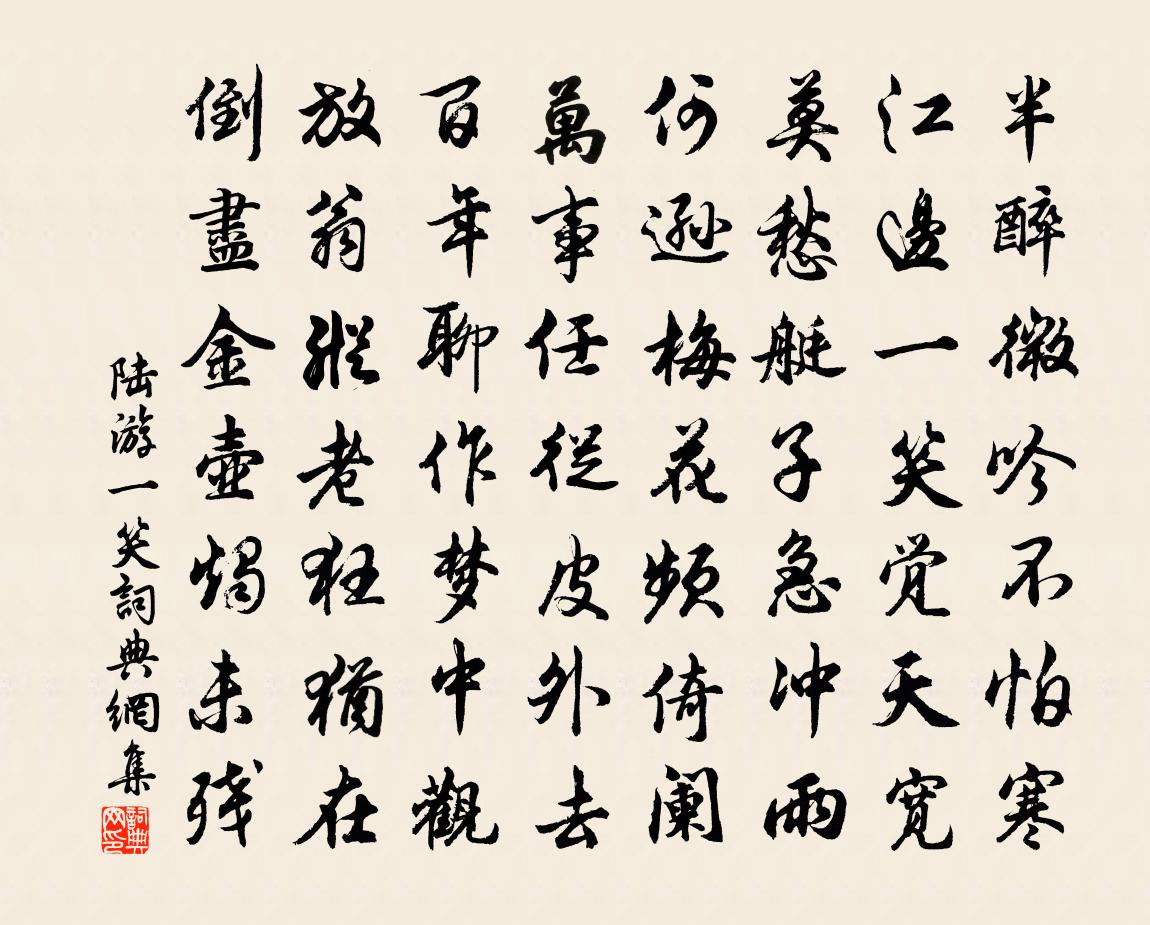 半醉微吟不怕寒
江邊一笑觉天宽
莫愁艇子急冲雨
何逊梅花频倚阑
萬事任從皮外去
百年聊作梦中觀
放翁縱老狂猶在
倒盡金壺燭未残
陆游一笑詞典網集
詞典网印